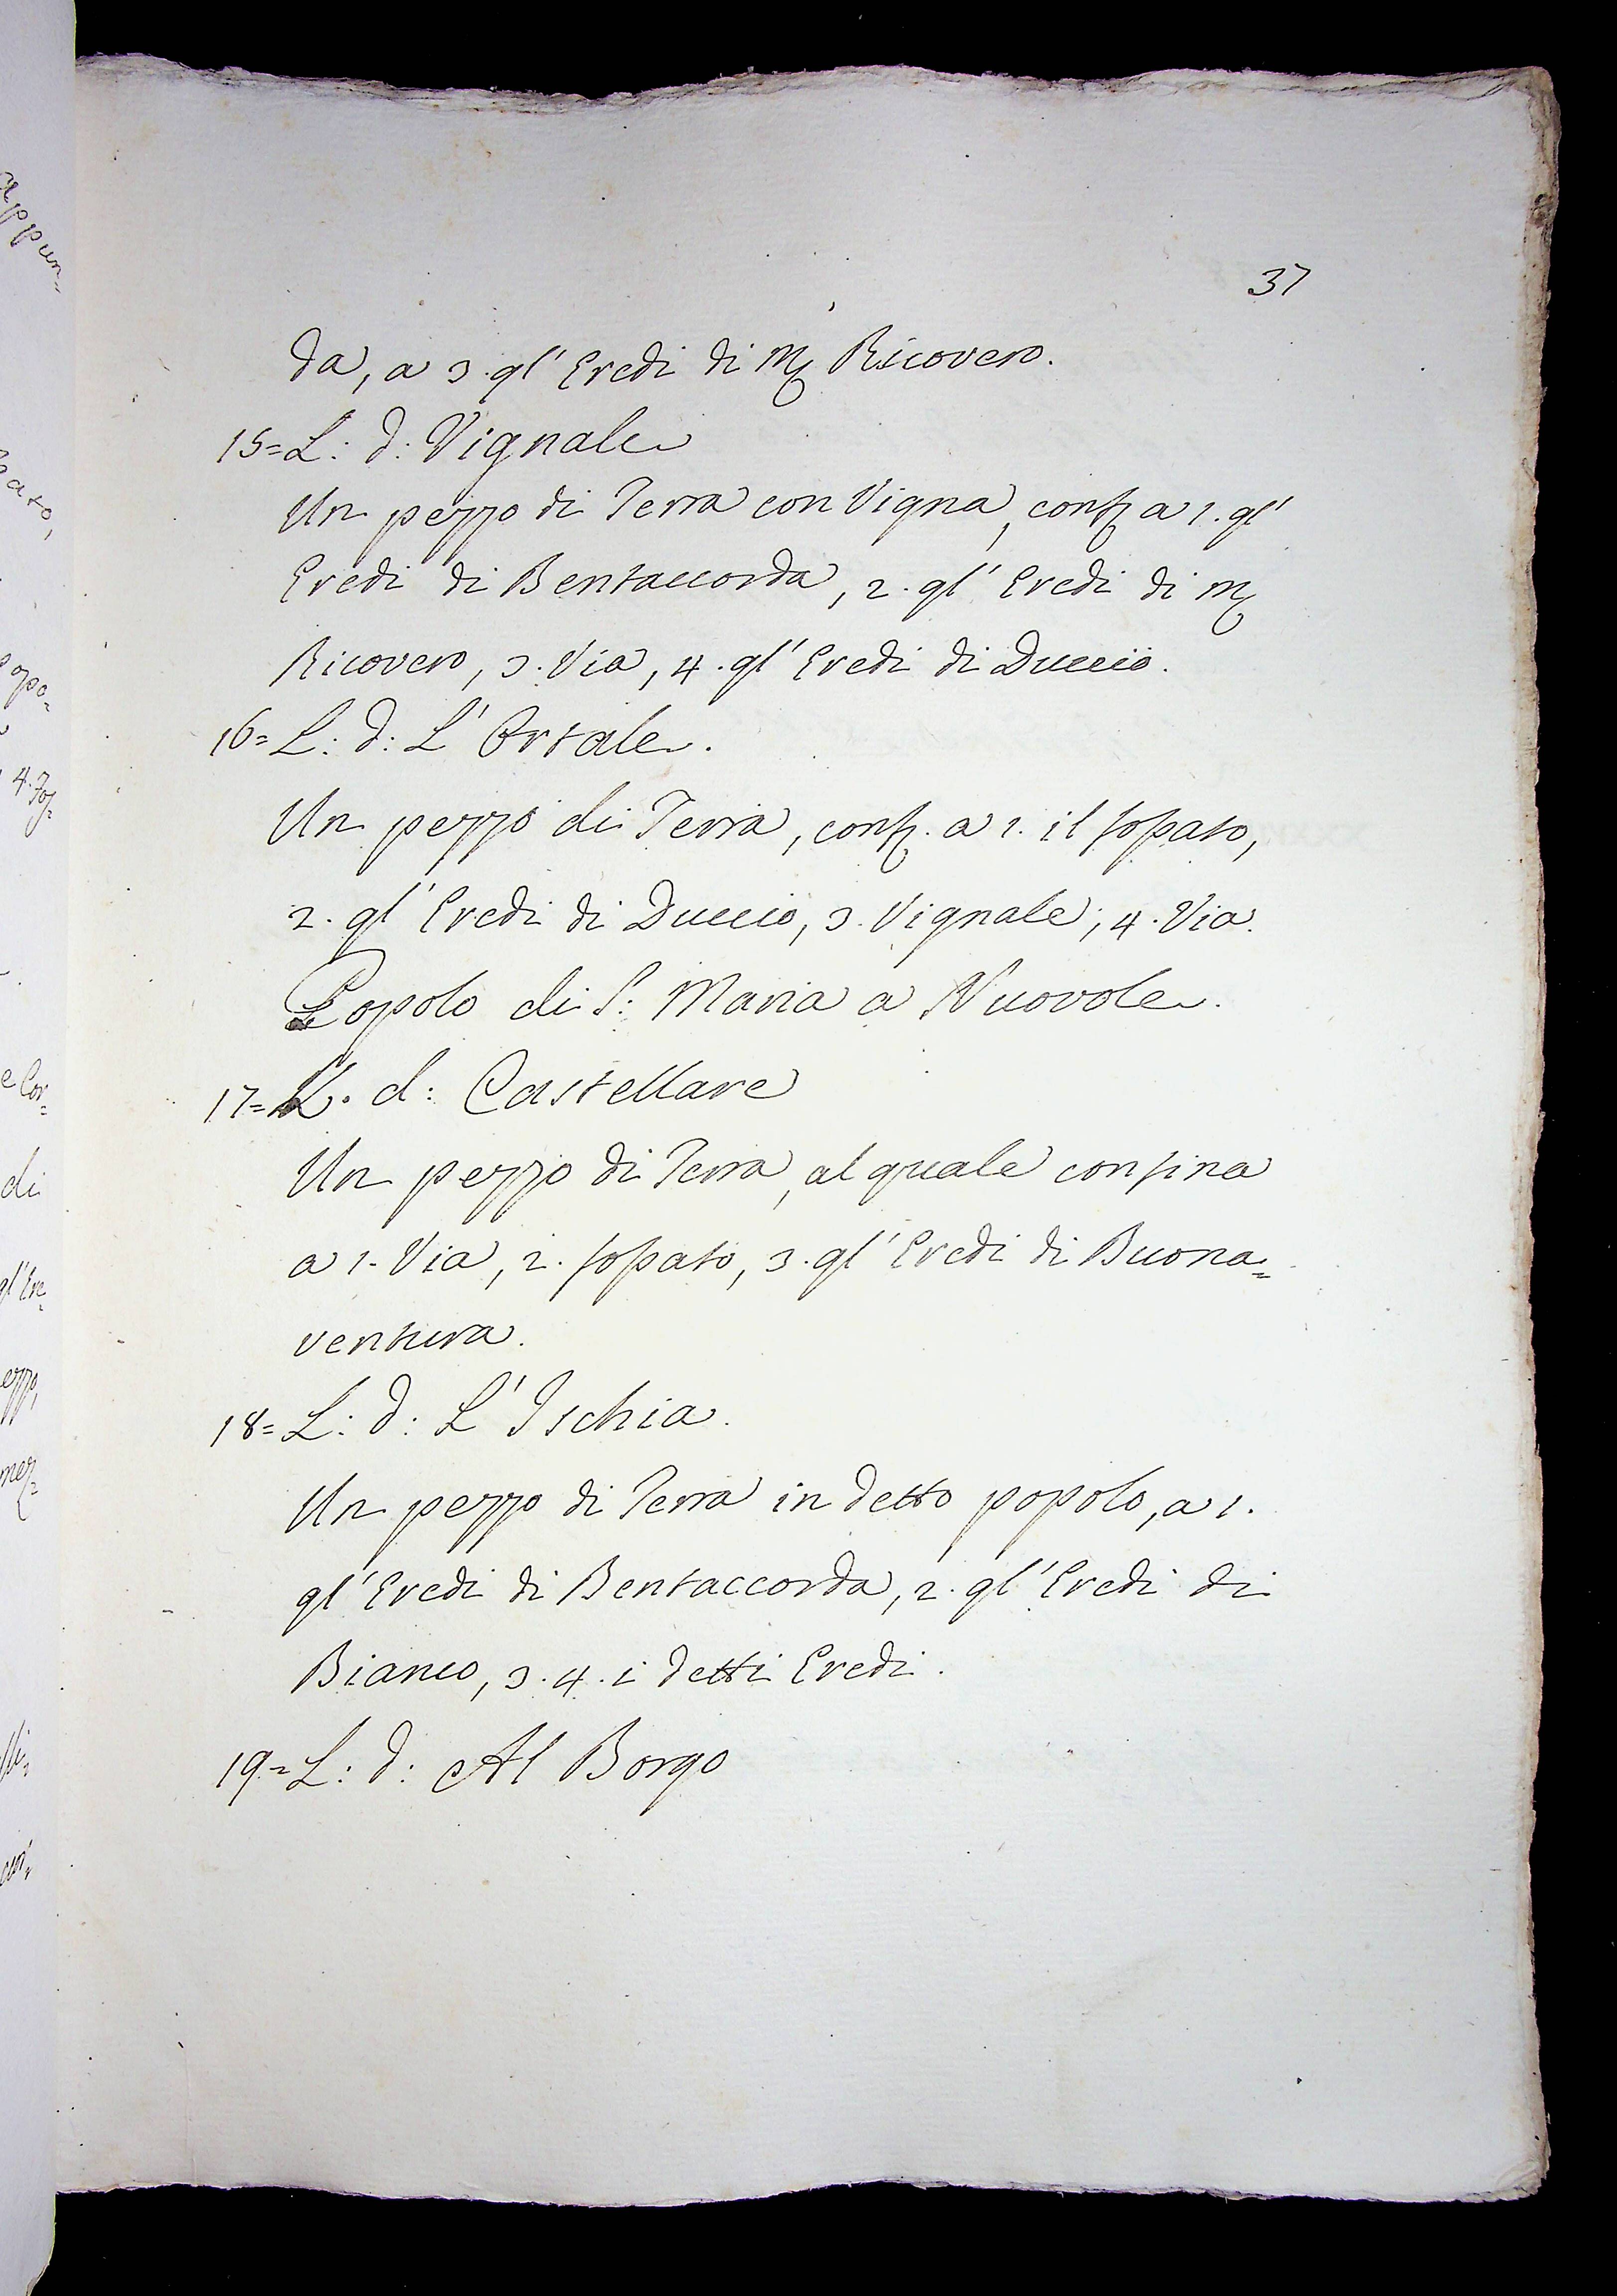 37
da, a 3. gl' Eredi di M. Ricovero.
15= L: d: Vignale
Un pezzo di Terra con Vigna, conf. a 1. gl'
Eredi di Bentaccorda, 2. gl' Eredi di M.
Ricovero, 3. Via, 4. gl' Eredi di Duccio.
16= L: d: L' Ortale.
Un pezzo di Terra, conf. a 1. il fossato,
2. gl' Eredi di Duccio, 3. Vignale, 4. Via.
Popolo di S: Maria a Nuovole.
17= L. d: Castellare
Un pezzo di Terra, al quale confina
a 1. Via, 2. fossato, 3. gl' Eredi di Buona=
ventura.
18= L: d: L' Ischia.
Un pezzo di Terra in detto popolo, a 1.
gl' Eredi di Bentaccorda, 2. gl' Eredi di
Bianco, 3. 4. i detti Eredi.
19= L: d: Al Borgo